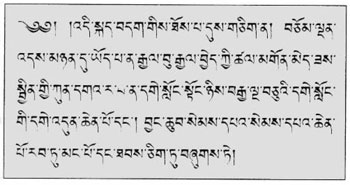 ༄༅། །འདི་སྐད་བདག་གིས་ཐོས་པ་དུས་གཅིག་ན། བཅོམ་ལྡན་
འདས་མཉན་དུ་ཡོད་པ་ན་རྒྱལ་བུ་རྒྱལ་བྱེད་ཀྱི་ཚལ་མགོན་མེད་ཟས་
སྦྱིན་གྱི་ཀུན་དགའ་ར་བ་ན་དགེ་སློང་སྟོང་ཉིས་བརྒྱ་ལྔ་བཅུའི་དགེ་སློང་
གི་དགེ་འདུན་ཆེན་པོ་དང་། བྱང་ཆུབ་སེམས་དཔའ་སེམས་དཔའ་ཆེན་
པོ་རབ་ཏུ་མང་པོ་དང་ཐབས་ཅིག་ཏུ་བཞུགས་ཏེ།